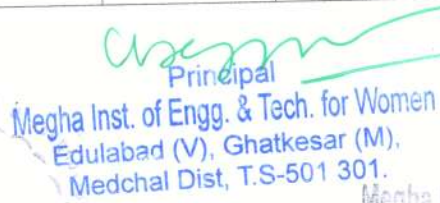 Principal
Megha Inst. of Engg. & Tech. for Women
Edulabad (V), Ghatkesar (M),
Medchal Dist, T.S-501 301.
Megha